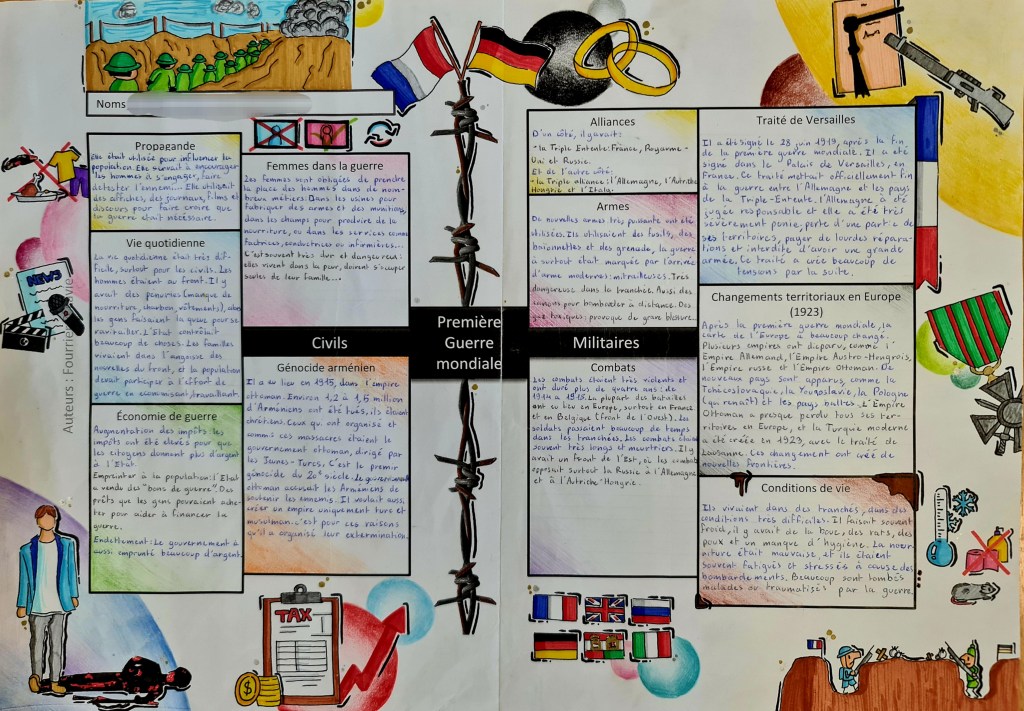 Noms
Propagande
Elle était utilisée pour influencer la
population. Elle servait à encourager
les hommes à s'engager, faire
détester l'ennemi... Elle utilisait
des affiches, des journaux, films et
discours pour faire croire que
la guerre était nécessaire.
Vie quotidienne
La vie quotidienne était très dif-
ficile, surtout pour les civils. Les
hommes étaient au front. Il y
avait des penuries (manque de
nourriture, charbon, vêtements), alors
les gens faisaient la queue pour se
ravitailler. L'État contrôlait
beaucoup de choses. Les familles
vivaient dans l'angoisse des
nouvelles du front, et la population
devait participer à l'effort de
guerre en économisant, travaillant
Économie de guerre
Augmentation des impôts: les
impôts ont été elevés pour que
les citoyens donnent plus d'argent
à l'Etat.
Emprunter à la population: l'Etat
a vendu des "bons de guerre". Des
prêts que les gens pouvaient ache-
ter pour aider à financer la
guerre.
Endettement: Le gouvernement à
aussi emprunté beaucoup d'argent.
Auteurs : Fourrier
NEWS
Femmes dans la guerre
Les femmes sont obligées de prendre
la place des hommes dans de nom-
breux métiers: Dans les usines pour
fabriquer des armes et des munitions,
dans les champs pour produire de la
nourriture, ou dans les services comme
factrices, conductrices ou infirmières...
C'est souvent très dur et dangereux:
elles vivent dans la peur, doivent s'occuper
seules de leur famille...
Civils
Génocide arménien
Il a eu lieu en 1915, dans l'empire
ottoman. Environ 1,2 à 1,5 million
d'Arméniens ont été tués, ils étaient
chrétiens. Ceux qu ont organisé et
commis ces massacres étaient le
gouvernement ottoman, dirigé par
les Jeunes-Turcs, C'est le premir
génocide du 20e siècle. Le gouvernement
ottoman accusait les Arméniens de
soutenir les ennemis. Il voulait aussi
créer un empire uniquement turc et
musulman. c'est pour ces raisons
qu'il a organisé leur extermination.
TAX
Première
Guerre
mondiale
Alliances
D'un côté, il y avait:
-la Triple Entente: France, Royaume-
Uni et Russie.
Et de l'autre côté:
-la Triple alliance: l'Allemagne, l'Autriche
Hongrie et l'Italie.
Armes
De nouvelles armes très puissante ont été
utilisées. Ils utilisaient des fusils, des
baïonnettes et des grenade, la guerre
à surtout était marquée par l'arrivée
d'arme modernes: mitrailleuses. Très
dangereuse dans la tranchée. Aussi des
canons pour bombarder à distance. Des
gaz toxiques: provoque de grave blessure.
Militaires
Combats
Les combats étaient très violents et
ont duré plus de quatre ans: de
1914 à 1918. La plupart des batailles
ont eu lieu en Europe, surtout en France
et en Belgique (front de l'Ouest). Les
soldats passaient beaucoup de temps
dans les tranchées. Les combats étaient
souvent très longs et meurtriers. Il y
avait un front de l'Est, où les combats
opposait surtout la Russie à l'Allemagne
et à l'Autriche-Hongrie.
Traité de Versailles
Il a été signé le 28 juin 1919, après la fin
de la première guerre mondiale. Il a été
signé dans le Palais de Versailles, en
France. Ce traité mettait officiellement fin
à la guerre entre l'Allemagne et les pays
de la Triple-Entente. l'Allemagne a été
jugée responsable et elle a été très
sévèrement punie, perte d'une partie de
ses territoires, payer de lourdes répara-
tions et interdite d'avoir une grande
armée. Ce traité a crée beaucoup de
tensions par la suite.
Changements territoriaux en Europe
(1923)
Après la première guerre mondiale, la
carte de l'Europe a beaucoup changé.
Plusieurs empires ont disparu, comme l'
Empire Allemand, l'Empire Austro-Hongrois,
l'Empire russe et l'Empire Ottoman. De
nouveaux pays sont apparus, comme la
Tchécoslovaquie, la Yougoslavie, la Pologne
(qui renaît) et les pays baltes. L'Empire
Ottoman a presque perdu tous ses ter-
ritoires en Europe, et la Turquie moderne
a été créée en 1923, avec le traité de
Lausanne. Ces changement ont créé de
nouvelles frontières.
Conditions de vie
Ils vivaient dans des tranchés, dans des
conditions très difficiles. Il faisait souvent
froid, il y avait de la boue, des rats, des
poux et un manque d'hygiène. La nour-
riture était mauvaise, et ils étaient
souvent fatigués et stressés à cause des
bombardements. Beaucoup sont tombés
malades ou traumatisés par la guerre.